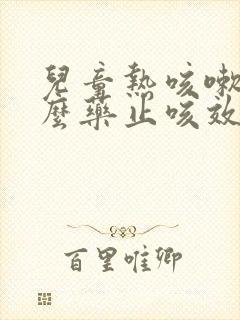 兒童熱咳嗽
麼藥止咳效
百里唯卿